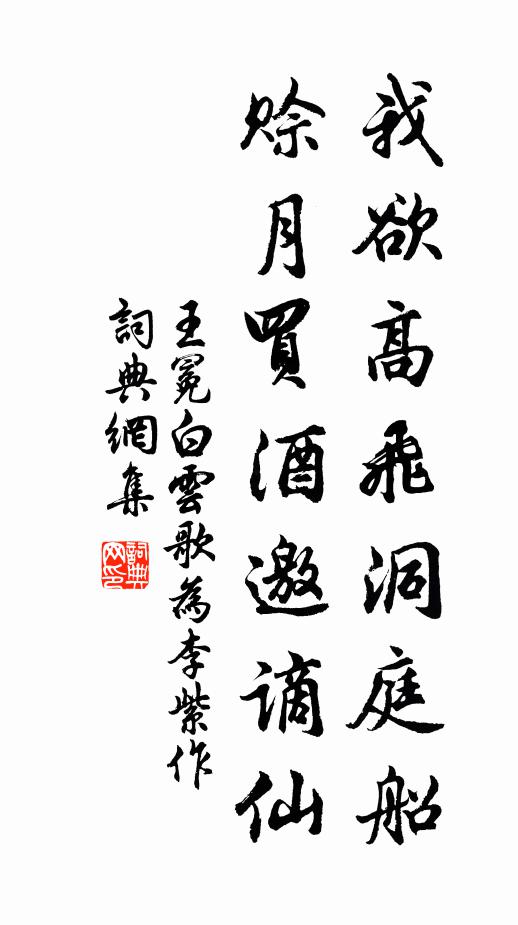 我欲高飛洞庭船
賒月買酒邀謫仙
王冕白雲歌為李紫作
詞典網集
詞典網印